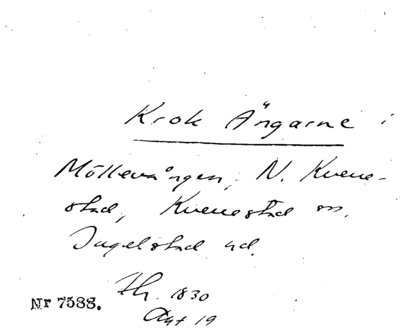 Krok Ängarne i
Möllevången, N. Kvene-
stad, Kvenestad sn.
Ingelstad hd.
Nr 7588. Th. 1830
Akt 19